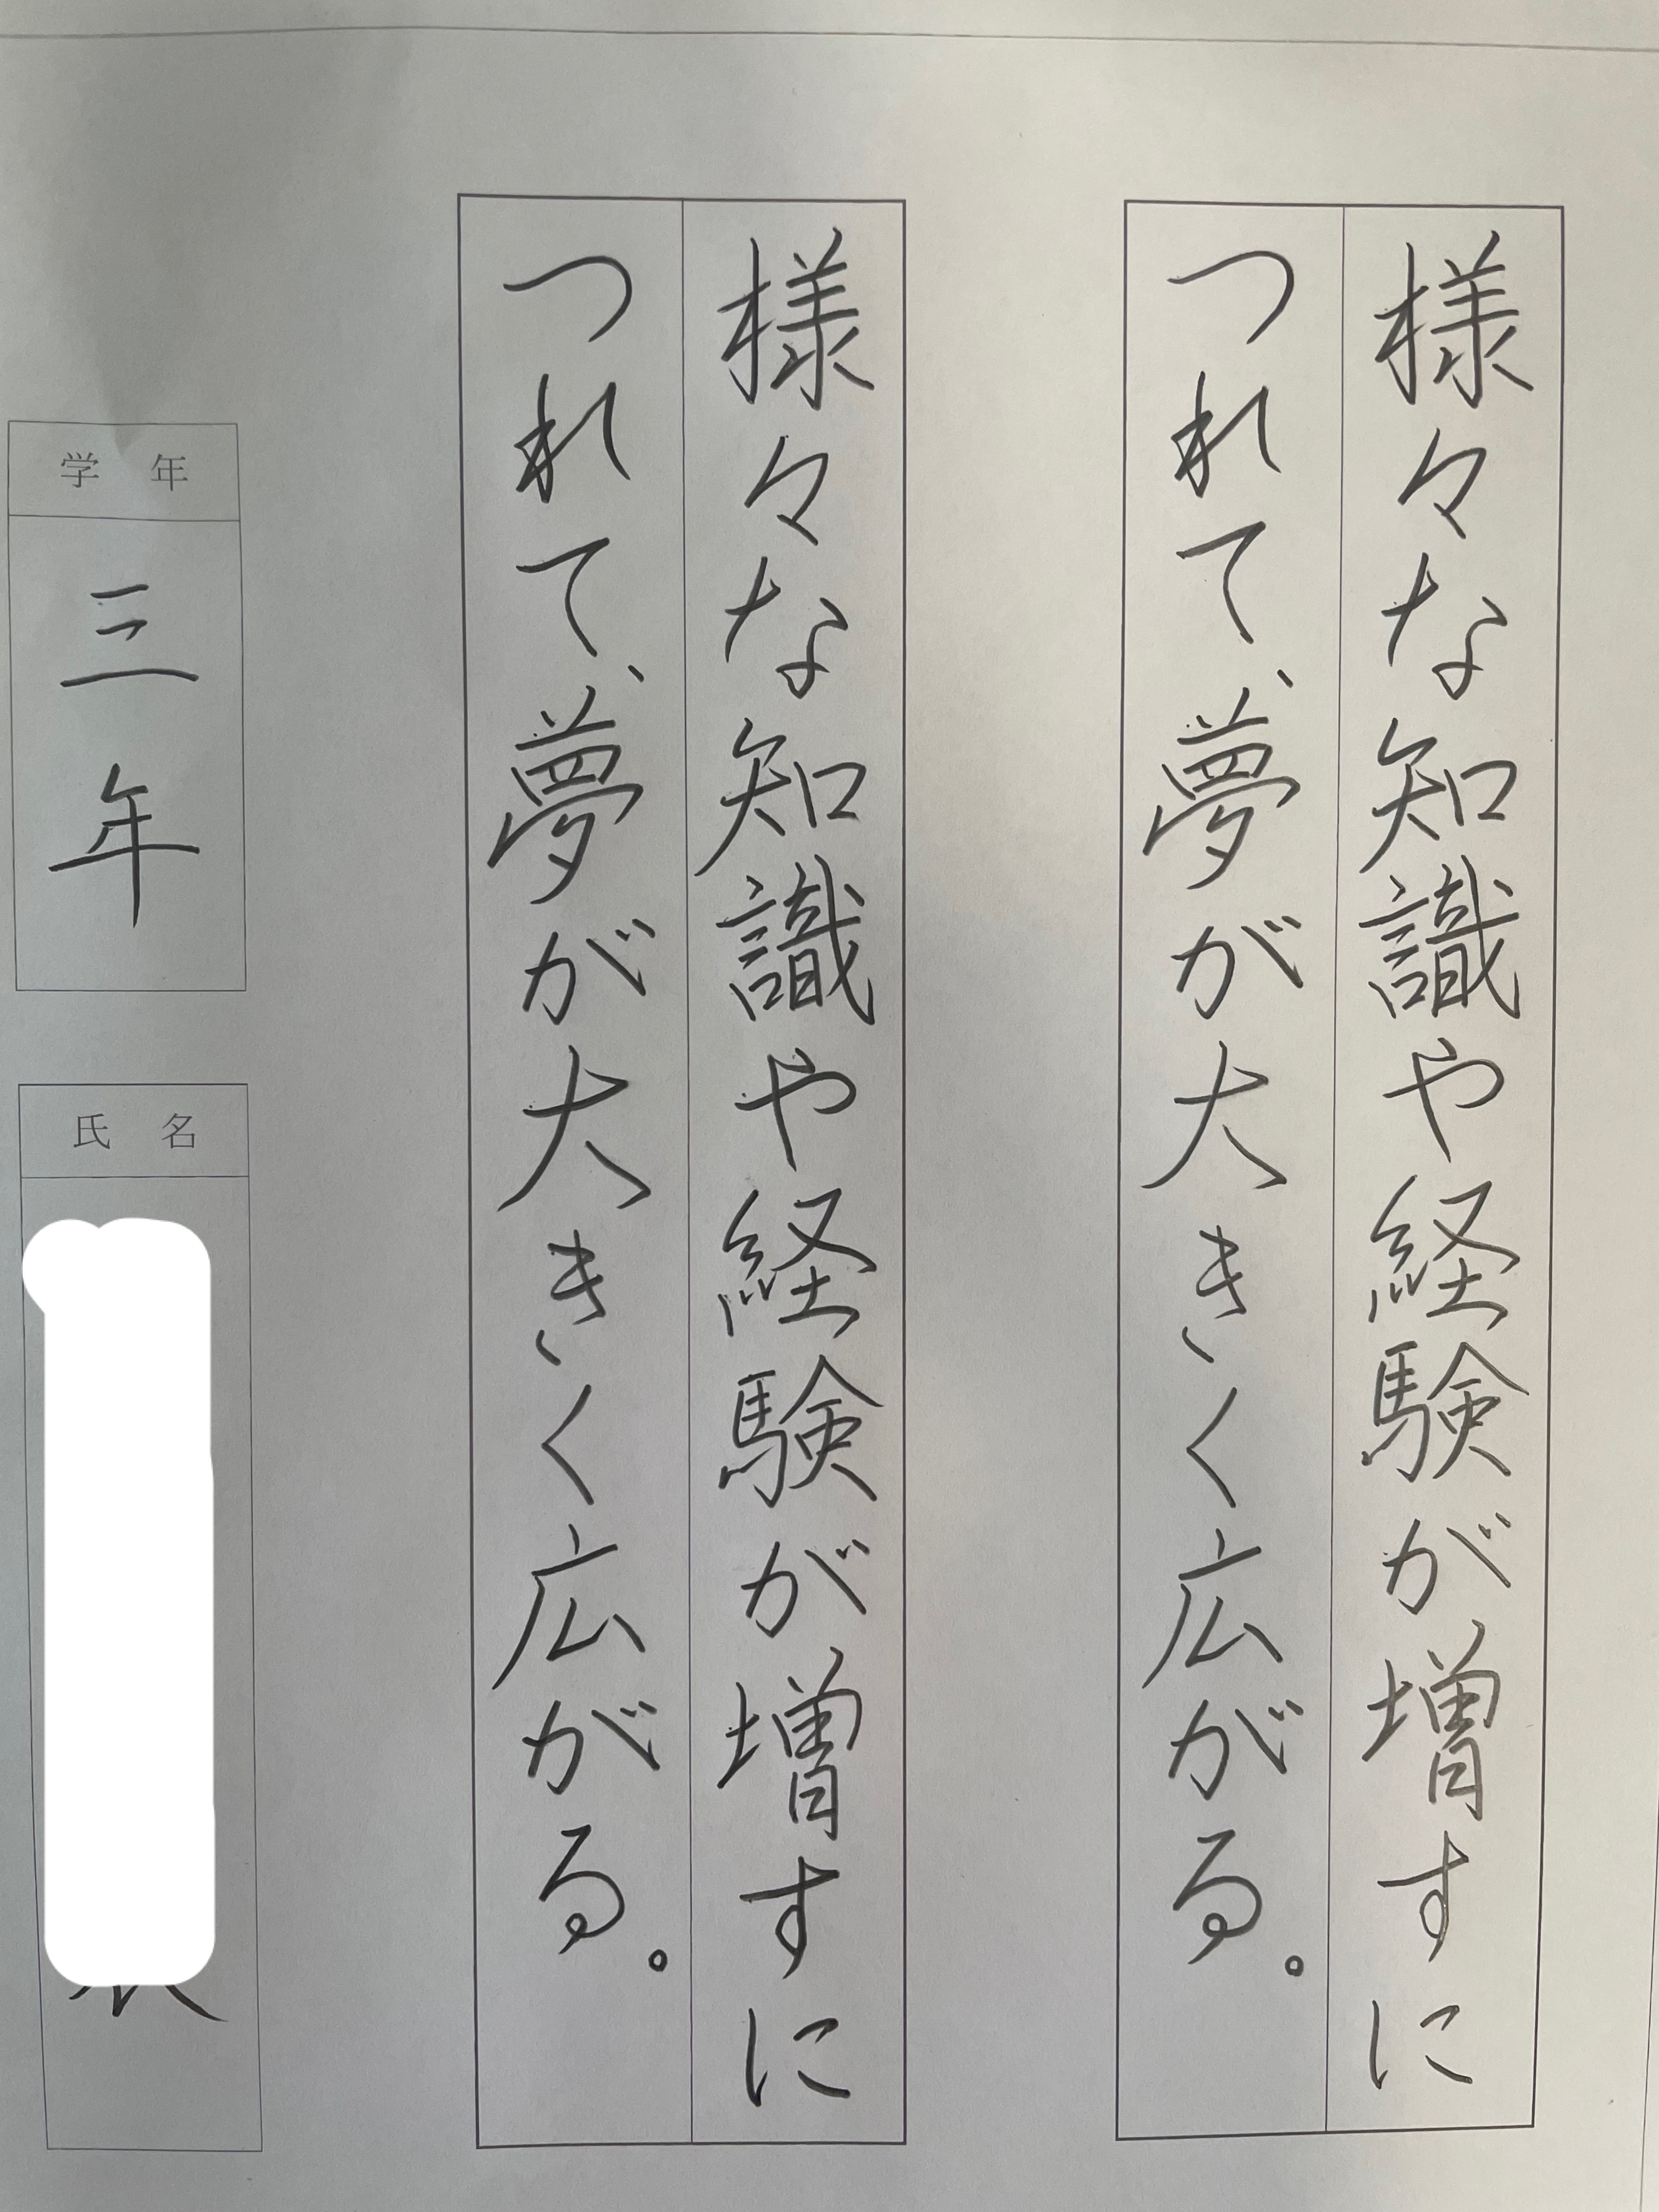 様々な知識や経験が増すに
つれて、夢が大きく広がる。
様々な知識や経験が増すに
つれて、夢が大きく広がる。
学年
三年
氏名